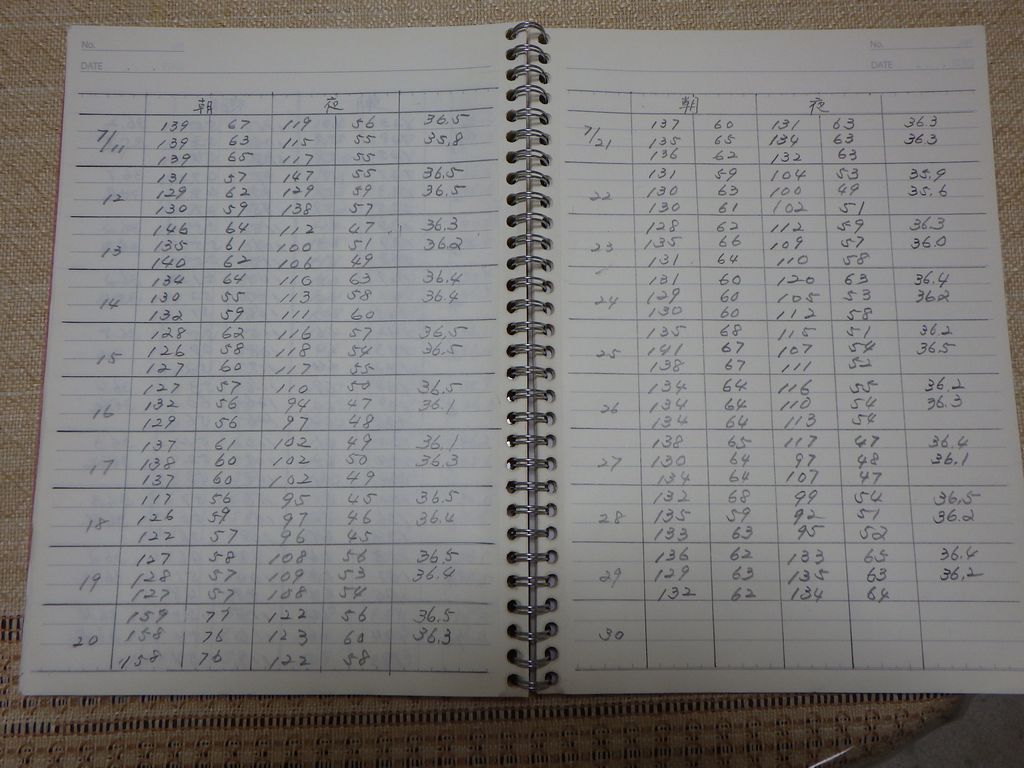 No.
DATE . . .
朝 夜
139 67 119 56 36.5
7/11 139 63 115 55 35.8
139 65 117 55
131 57 147 55 36.5
12 129 62 129 59 36.5
130 59 138 57
146 64 112 47 36.3
13 135 61 100 51 36.2
140 62 106 49
134 64 110 63 36.4
14 130 55 113 58 36.4
132 59 111 60
128 62 116 57 36.5
15 126 58 118 54 36.5
127 60 117 55
127 57 110 50 36.5
16 132 56 94 47 36.1
129 56 97 48
137 61 102 49 36.1
17 138 60 102 50 36.3
137 60 102 49
117 56 95 45 36.5
18 126 59 97 46 36.4
122 57 96 45
127 58 108 56 36.5
19 128 57 109 53 36.4
127 57 108 54
159 77 122 56 36.5
20 158 76 123 60 36.3
158 76 122 58
No.
DATE . . .
朝 夜
137 60 131 63 36.3
7/21 135 65 134 63 36.3
136 62 132 63
131 59 104 53 35.9
22 130 63 100 49 35.6
130 61 102 51
128 62 112 59 36.3
23 135 66 109 57 36.0
131 64 110 58
131 60 120 63 36.4
24 129 60 105 53 36.2
130 60 112 58
135 68 115 51 36.2
25 141 67 107 54 36.5
138 67 111 52
134 64 116 55 36.2
26 134 64 110 54 36.3
134 64 113 54
138 65 117 47 36.4
27 130 64 97 48 36.1
134 64 107 47
132 68 99 54 36.5
28 135 59 92 51 36.2
133 63 95 52
136 62 133 65 36.4
29 129 63 135 63 36.2
132 62 134 64
30